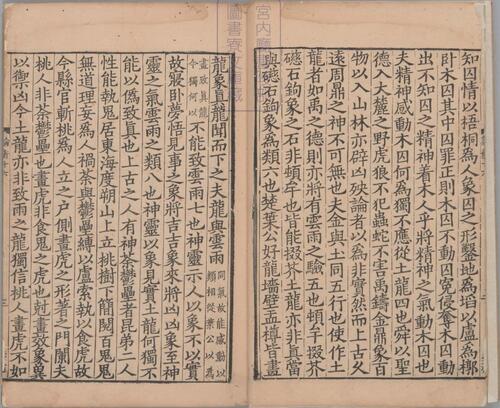 知囚情以梧桐爲人象囚之形鑿地爲坎以盧爲槨
卧木囚其中囚罪正則木囚不動囚冤侵奪木囚動
出不知囚之精神着木人乎將精神之氣動木囚也
夫精神感動木囚何爲獨不應從土龍四也舜以聖
德入大麓之野虎狼不犯蟲蛇不害禹鑄金鼎象百
物以入山林亦辟凶殃論者以爲非實然而上古久
遠周鼎之神不可無也夫金與土同五行也使作土
龍者如禹之德則亦將有雲雨之驗五也頓牟掇芥
磁石鉤象之石非頓牟也皆能掇芥土龍亦非真當
與磁石鉤象爲類六也葉公好龍墻壁盂樽皆畫
龍象真龍聞而下之夫龍與雲雨同氣故能感動以類相從葉公以爲
畫致真龍今獨何以不能致雲雨七也神靈示人以象不以實
故寢卧夢悟見事之象將吉吉象來將凶凶象至神
靈之氣雲雨之類八也神靈以象見實土龍何獨不
能以偽致真也上古之人有神荼鬱壘者昆弟二人
性能執鬼居東海度朔山上立桃樹下簡閱百鬼鬼
無道理妄爲人禍荼與鬱壘縛以盧索執以食虎故
今縣官斬桃爲人立之戶側畫虎之形著之門闌夫
桃人非荼鬱壘也畫虎非食鬼之虎也畫效象冀
以禦凶今土龍亦非致雨之龍獨信桃人畫虎不如
宮内廳
圖書寮文庫藏